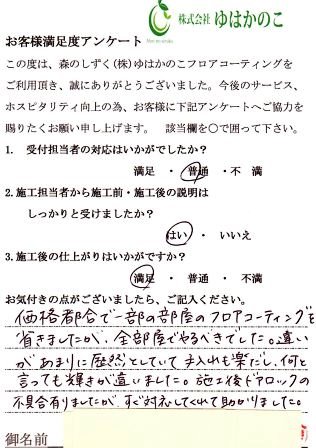 株式会社 ゆはかのこ
お客様満足度アンケート
この度は、森のしずく(株)ゆはかのこフロアコーティングを
ご利用頂き、誠にありがとうございました。今後のサービス、
ホスピタリティ向上の為、お客様に下記アンケートへご協力を
賜りたくお願い申し上げます。 該当欄を〇で囲って下さい。
1. 受付担当者の対応はいかがでしたか？
満足 ・ 普通 ・ 不 満
2. 施工担当者から施工前・施工後の説明は
しっかりと受けましたか？
はい ・ いいえ
3. 施工後の仕上がりはいかがですか？
満足 ・ 普通 ・ 不満
お気付きの点がございましたら、ご記入ください。
価格都合で一部の部屋のフロアコーティングを
省きましたが、全部屋でやるべきでした。違い
があまりに歴然としていて手入れも楽だし、何と
言っても輝きが違いました。施工後ドアロックの
不具合有りましたが、すぐ対応してくれて助かりました。
御名前